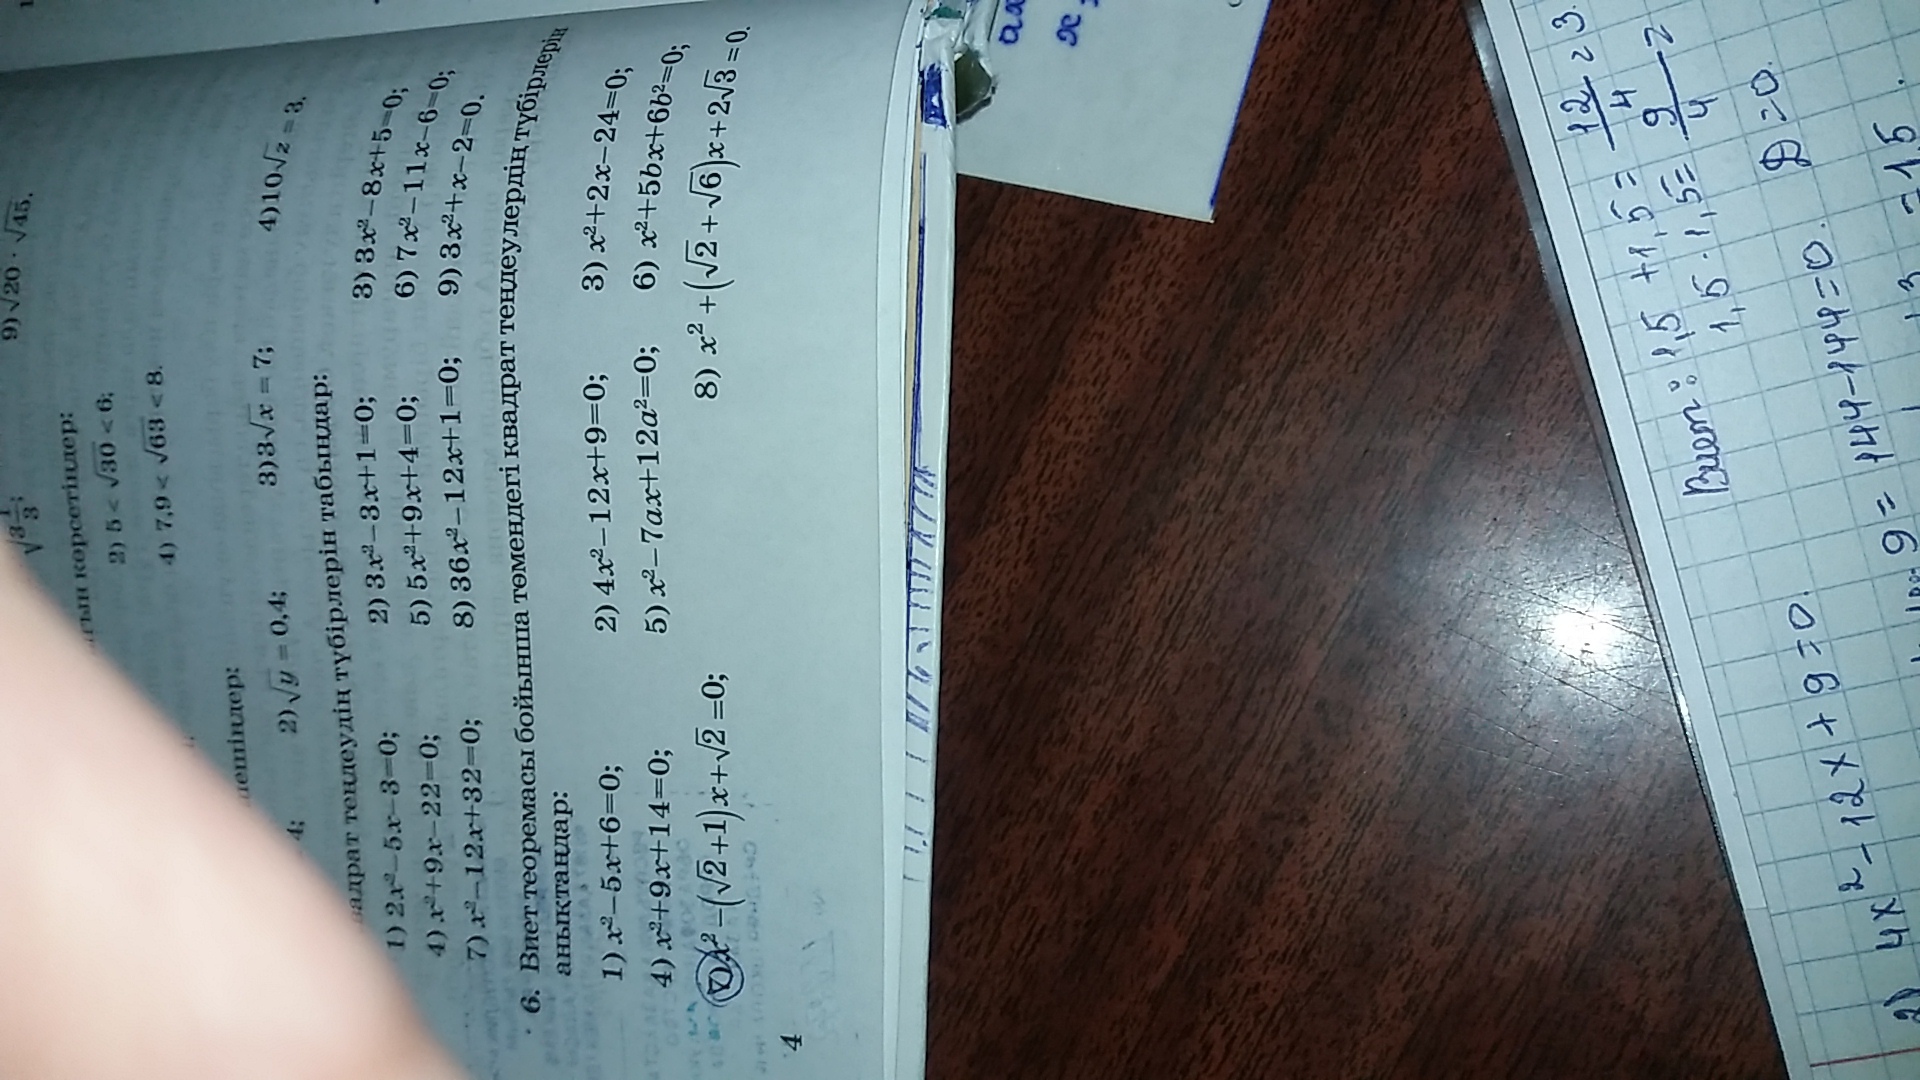 9) √20 · √45.
√3 1/3;
көрсетіңдер:
2) 5 < √30 < 6;
4) 7,9 < √63 < 8.
2) √y = 0,4; 3) 3√x = 7; 4) 10√z = 3.
теңдеудің түбірлерін табыңдар:
1) 2x²−5x−3=0; 2) 3x²−3x+1=0; 3) 3x²−8x+5=0;
4) x²+9x−22=0; 5) 5x²+9x+4=0; 6) 7x²−11x−6=0;
7) x²−12x+32=0; 8) 36x²−12x+1=0; 9) 3x²+x−2=0.
6. Виет теоремасы бойынша төмендегі квадрат теңдеулердің түбірлерін
анықтаңдар:
1) x²−5x+6=0; 2) 4x²−12x+9=0; 3) x²+2x−24=0;
4) x²+9x+14=0; 5) x²−7ax+12a²=0; 6) x²+5bx+6b²=0;
7) x²−(√2+1)x+√2=0; 8) x²+(√2+√6)x+2√3=0.
4
ax
x
Виет: 1,5+1,5= 12/4 = 3.
1,5·1,5= 9/4
2) 4x²−12x+9=0. D=0.
9= 144−144=0.
=1,5.